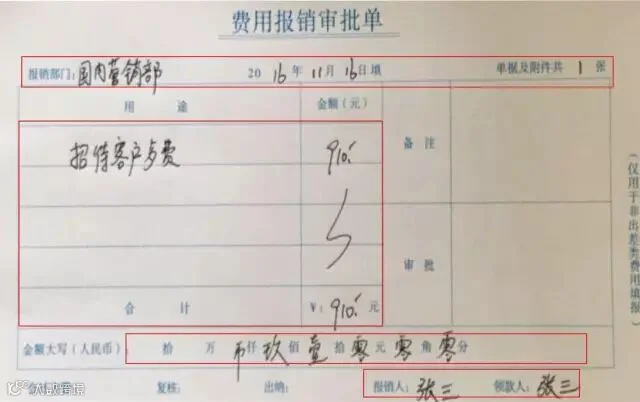 费用报销审批单
报销部门：国内营销部 2016年11月16日填 单据及附件共1张
用途 金额（元）
招待客户 费 910.
备注
审批
合计 ￥：910.元
金额大写（人民币）： 拾 万 仟 玖 佰 壹 拾 零 元 零 角 零 分
复核： 出纳： 报销人：张三 领款人：张三
（仅用于非出差类费用填报）